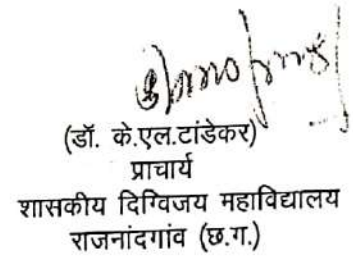 (डॉ. के.एल.टांडेकर)
प्राचार्य
शासकीय दिग्विजय महाविद्यालय
राजनांदगांव (छ.ग.)